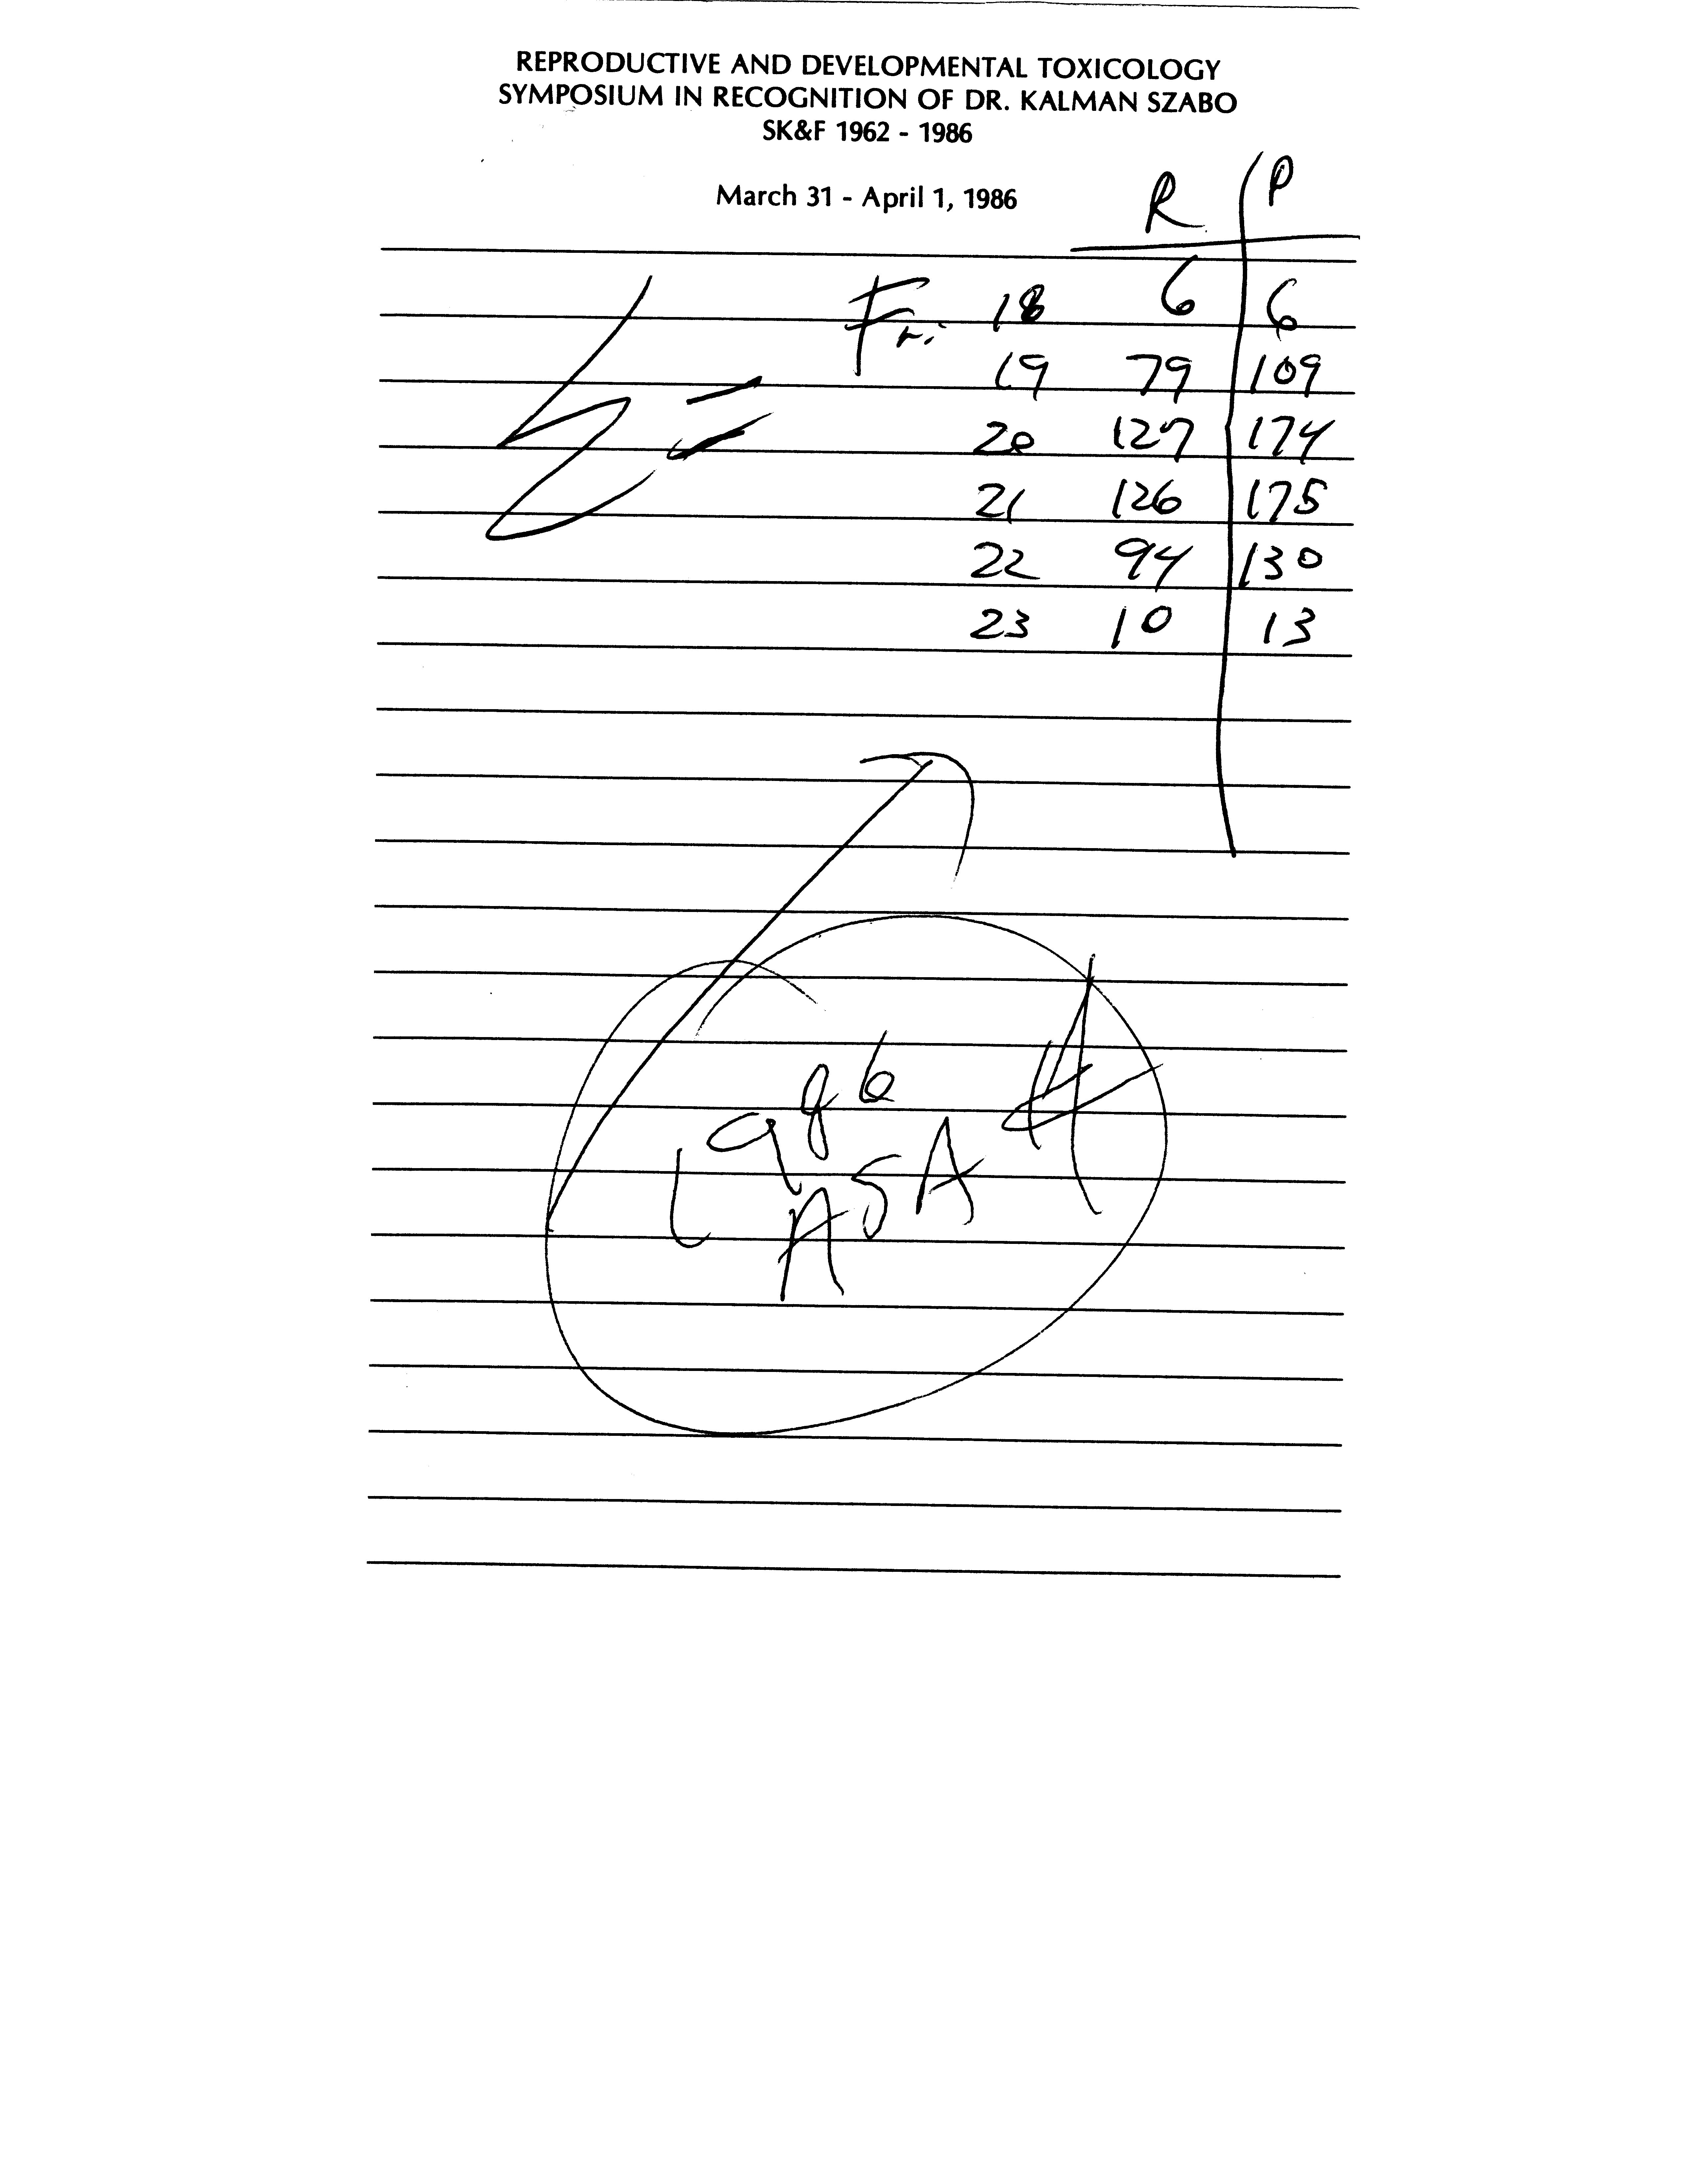 REPRODUCTIVE AND DEVELOPMENTAL TOXICOLOGY
SYMPOSIUM IN RECOGNITION OF DR. KALMAN SZABO
SK&F 1962 - 1986
March 31 - April 1, 1986
R P
Fri. 18 6 6
19 79 109
20 127 174
21 126 175
22 94 130
23 10 13